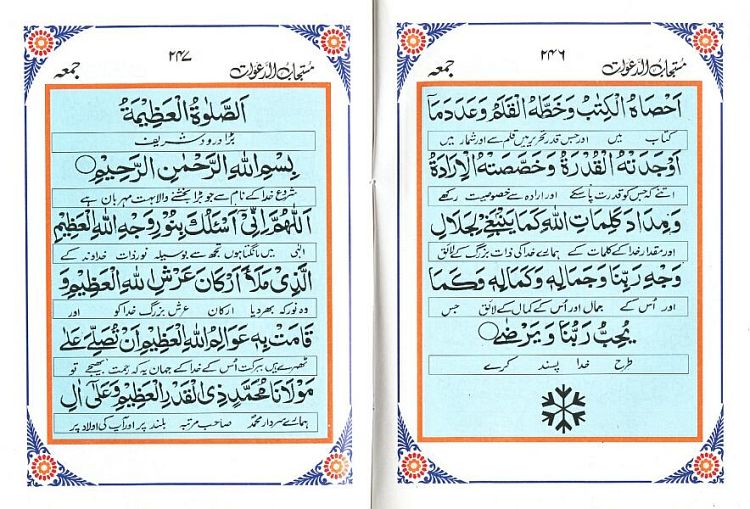 مستجاب الدعوات ۲۴۶ جمعہ
اَحْصَاهُ الْكِتٰبُ وَخَطَّهُ الْقَلَمُ وَعَدَدَ مَآ
کتاب میں اور جس قدر تحریر میں قلم سے اور شمار میں
اَوْجَدَتْهُ الْقُدْرَةُ وَخَصَّصَتْهُ الْاِرَادَةُ
اتنے کہ جس کو قدرت پاسکے اور ارادہ سے خصوصیت رکھے
وَمِدَادَ كَلِمَاتِ اللهِ كَمَا يَنْبَغِيْ لِجَلَالِ
اور مقدار خدا کے کلمات کے ہمارے خدا کی ذات بزرگ کے لائق
وَجْهِ رَبِّنَا وَجَمَالِهٖ وَكَمَالِهٖ وَكَمَا
اور اُس کے جمال اور اُس کے کمال کے لائق جس
يُحِبُّ رَبُّنَا وَيَرْضٰى
طرح خدا پسند کرے
مستجاب الدعوات ۲۴۷ جمعہ
اَلصَّلٰوةُ الْعَظِيْمَةُ
بڑا درود شریف
بِسْمِ اللهِ الرَّحْمٰنِ الرَّحِيْمِ
شروع خدا کے نام سے جو بڑا بخشنے والا بہت مہربان ہے
اَللّٰهُمَّ اِنِّيْ اَسْئَلُكَ بِنُوْرِ وَجْهِ اللهِ الْعَظِيْمِ
الٰہی میں مانگتا ہوں تجھ سے بوسیلہ نور ذات خداوند کے
الَّذِيْ مَلَأَ اَرْكَانَ عَرْشِ اللهِ الْعَظِيْمِ وَ
وہ نور کہ بھر دیا ارکان عرش بزرگ خدا کو اور
قَامَتْ بِهٖ عَوَالِمُ اللهِ الْعَظِيْمِ اَنْ تُصَلِّيَ عَلٰى
ٹھہرے ہیں ببرکت اُس کے خدا کے جہان یہ کہ رحمت بھیجے تو
مَوْلَانَا مُحَمَّدٍ ذِى الْقَدْرِ الْعَظِيْمِ وَعَلٰٓى اٰلِ
ہمارے سردار محمدؐ صاحب مرتبہ بلند پر اور آپ کی اولاد پر